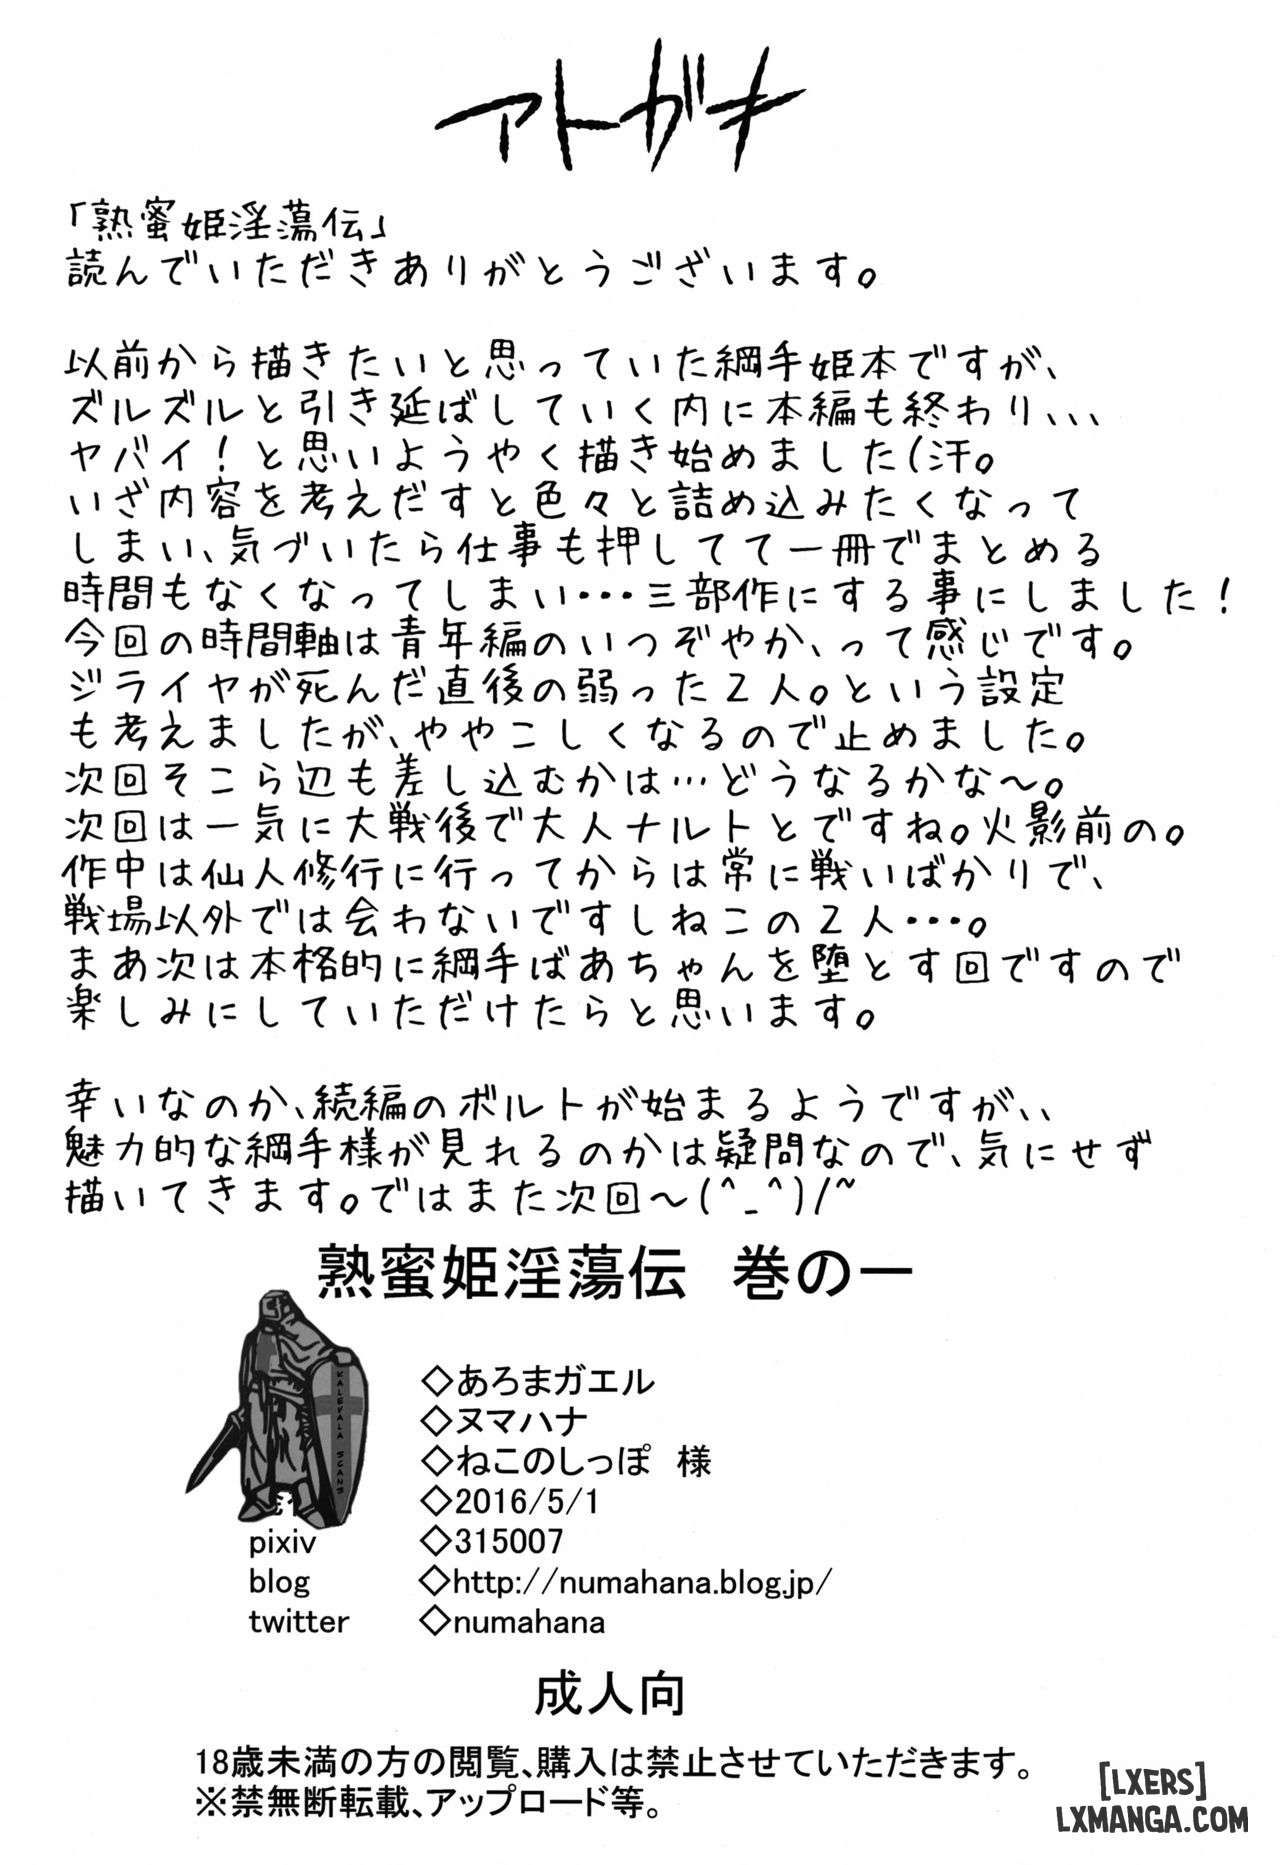 アトガキ
「熟蜜姫淫蕩伝」
読んでいただきありがとうございます。
以前から描きたいと思っていた綱手姫本ですが、
ズルズルと引き延ばしていく内に本編も終わり、、、
ヤバイ！と思いようやく描き始めました(汗。
いざ内容を考えだすと色々と詰め込みたくなって
しまい、気づいたら仕事も押してて一冊でまとめる
時間もなくなってしまい・・・三部作にする事にしました！
今回の時間軸は青年編のいつぞやか、って感じです。
ジライヤが死んだ直後の弱った2人。という設定
も考えましたが、ややこしくなるので止めました。
次回そこら辺も差し込むかは…どうなるかな～。
次回は一気に大戦後で大人ナルトとですね。火影前の。
作中は仙人修行に行ってからは常に戦いばかりで、
戦場以外では会わないですしねこの2人・・・。
まあ次は本格的に綱手ばあちゃんを堕とす回ですので
楽しみにしていただけたらと思います。
幸いなのか、続編のボルトが始まるようですが、、
魅力的な綱手様が見れるのかは疑問なので、気にせず
描いてきます。ではまた次回～(^_^)/~
熟蜜姫淫蕩伝 巻の一
◇あろまガエル
◇ヌマハナ
◇ねこのしっぽ 様
◇2016/5/1
pixiv ◇315007
blog ◇http://numahana.blog.jp/
twitter ◇numahana
KALEVALA SCANS
成人向
18歳未満の方の閲覧、購入は禁止させていただきます。
※禁無断転載、アップロード等。
[LXERS]
LXMANGA.COM